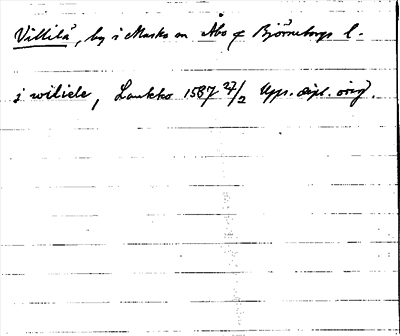 Villilä, by i Masko sn Åbo o Björneborgs l.
i wiliele, Laukko 1587 27/2 Upps. dipl. orig.